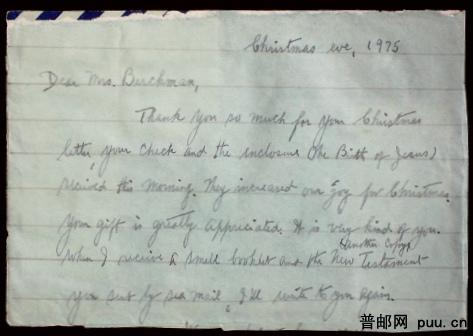 Christmas eve, 1975
Dear Mrs. Berchman,
Thank you so much for your Christmas
letter, your check and the inclosure (The Birth of Jesus)
received this morning. They increased our joy for Christmas.
Your gift is greatly appreciated. It is very kind of you.
(another copy)
When I receive a small booklet and the New Testament
you sent by sea mail, I'll write to you again.
普邮网 puu.cn